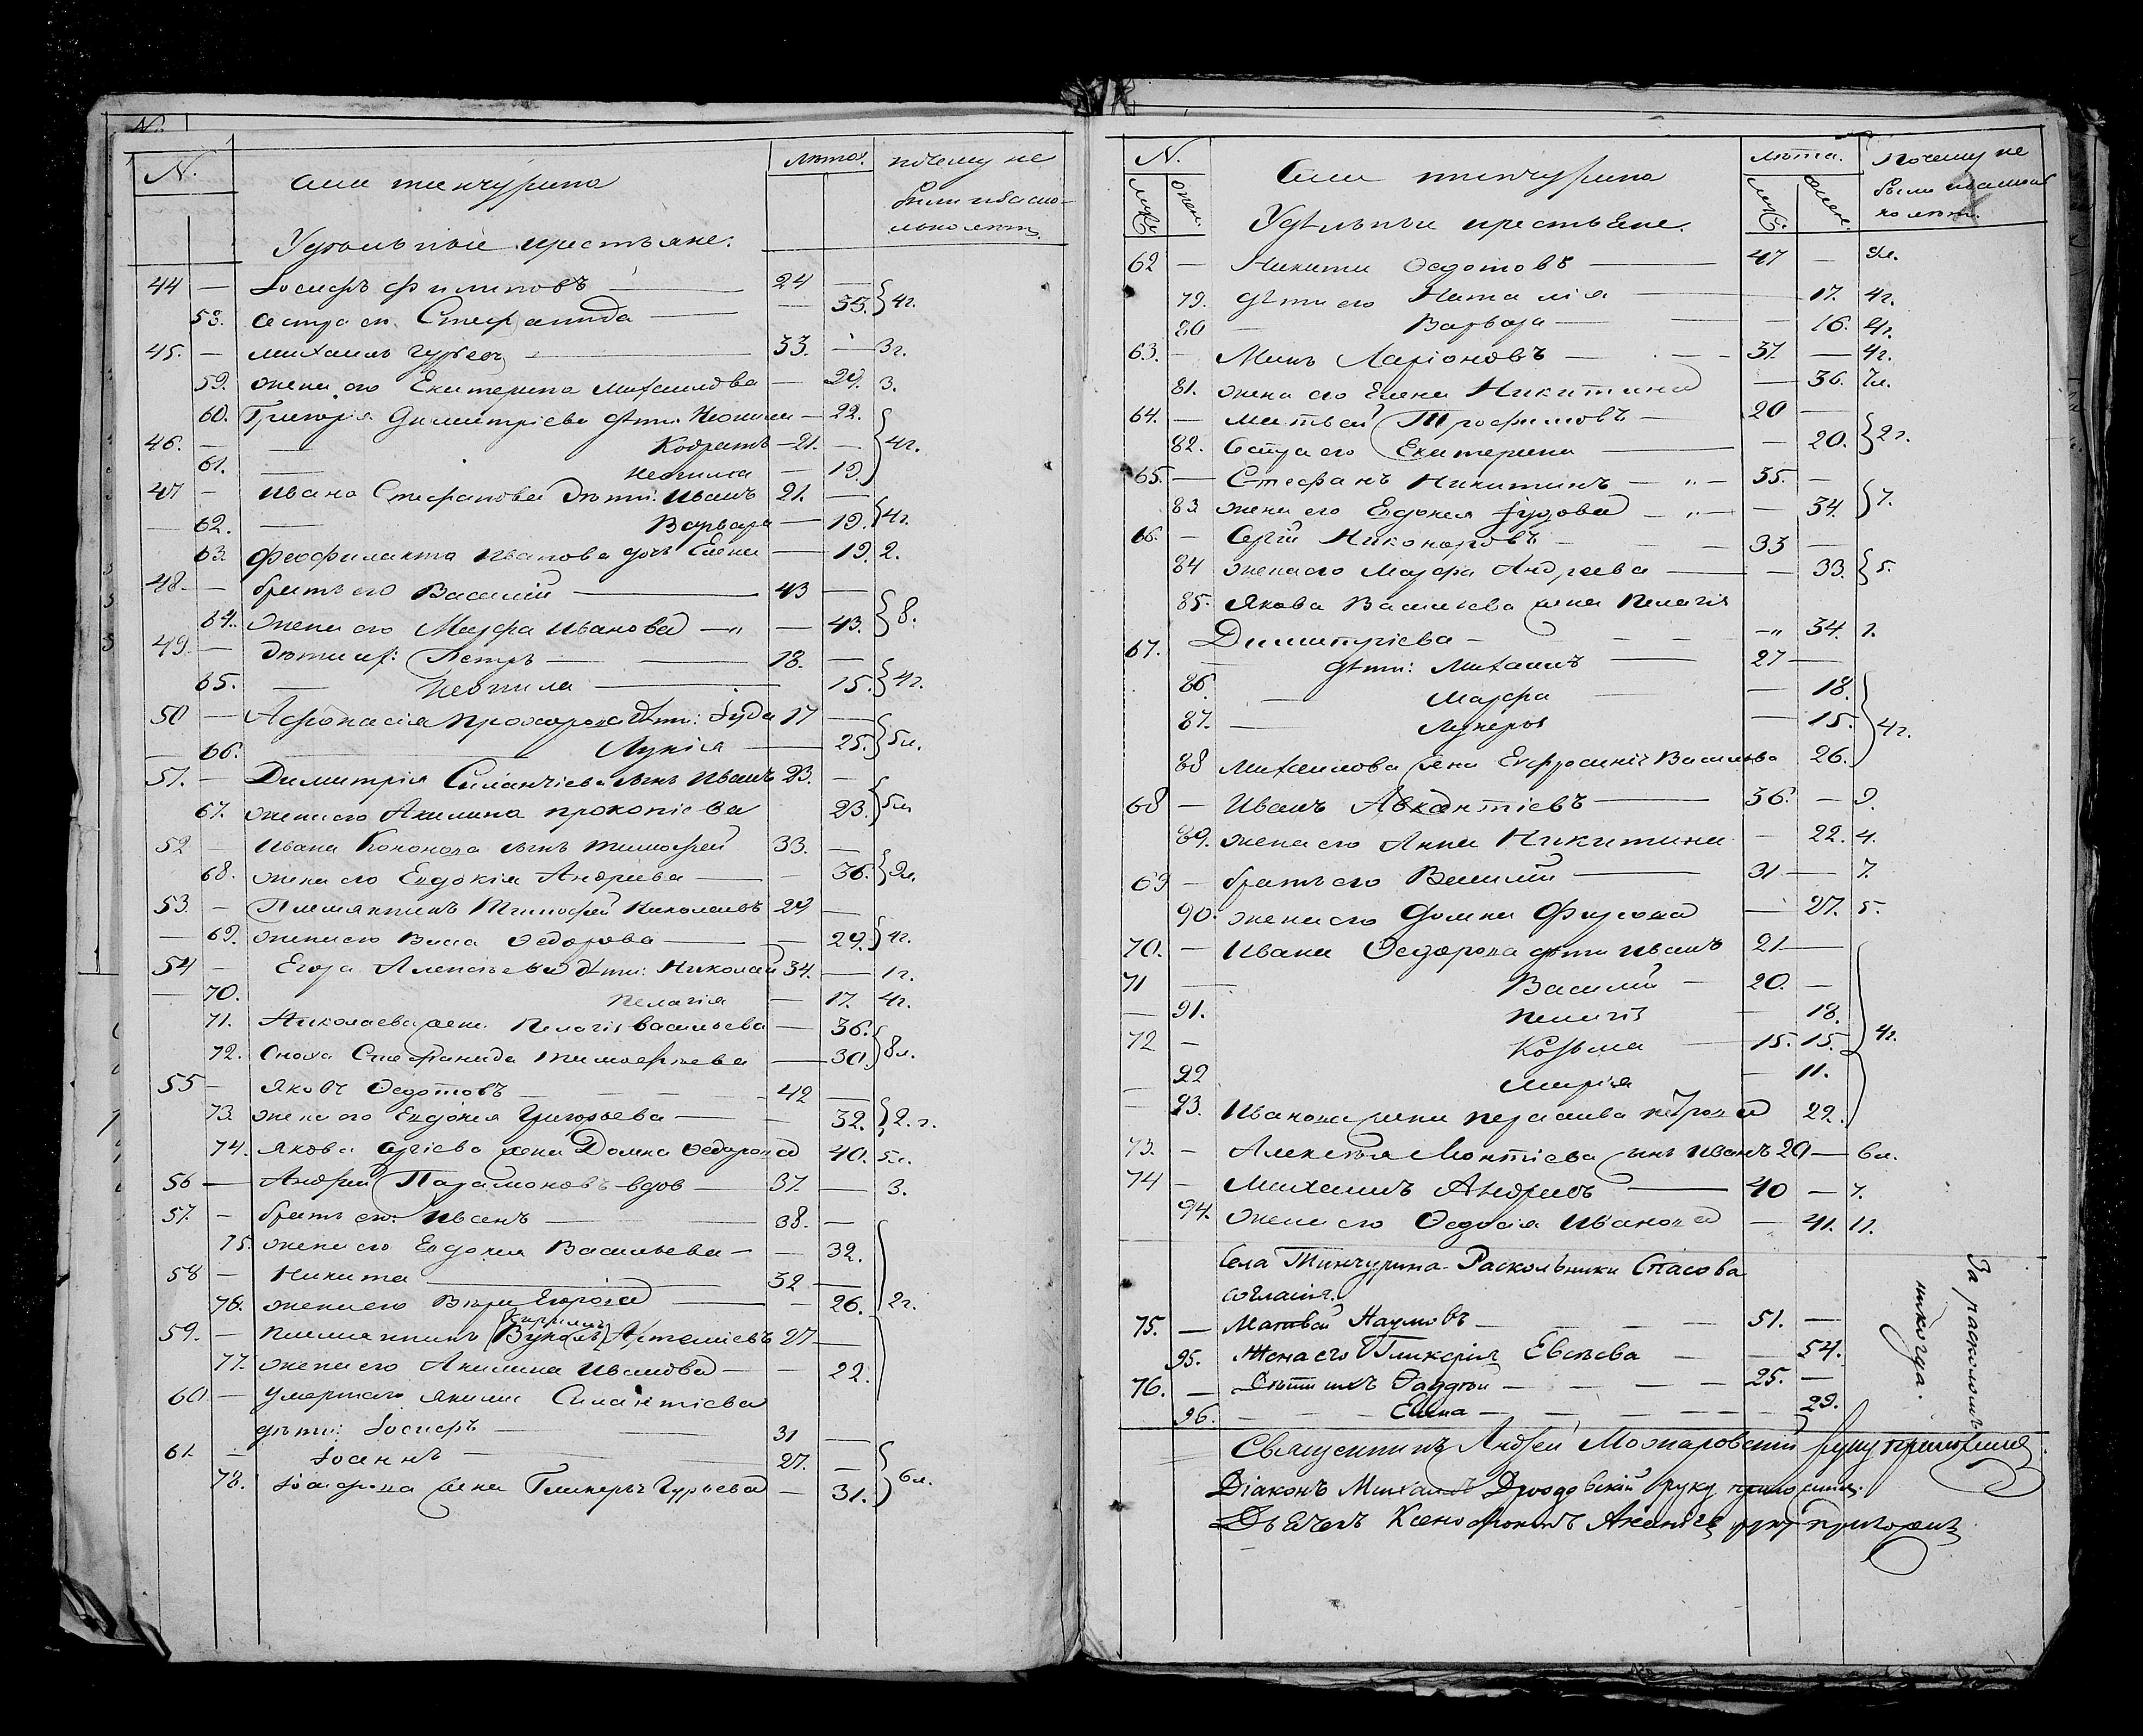 N.
села тинчурина
лѣта.
почему не были и васколько лѣтъ.
Удѣльныі крестьяне.
44 — Іосифъ Филиповъ — 24 —
58. сестра ег. Стефанида — — 35. } 4г.
45. — михаилъ Гурьевъ — 33. — 3г.
59. жена его Екатерина Михаилова — 29. 3.
60. Григорія Димитріева дѣти: Неонила — 22.
46. — Кодратъ — 21. — } 4г.
61. — Неонила — 19.
47 — Ивана Стефанова дѣти: Иванъ 21. —
62. — Варвара — 19. } 4г.
63. Феофилакта Иванова дочь Елена — 19. 2.
48. — братъ его Василій — 43 —
64. жена его Марфа Иванова — „ — 43. } 8.
49. — дѣти их: Петръ — 18. —
65. — Неонила — 15. } 4г.
50 — Афонасія Прохорова дѣти: Іуда 17 —
— 66. — Лукія — 25. } 5л.
51. — Димитрія Силантіева сынъ Иванъ 23. —
67. жена его Акилина прокопіева 23. } 5л
52 — Ивана Кононова сынъ тимофей 33. —
68. жена его Евдокія Андріева — 36. } 9л.
53. — Племянникъ Тимофей Николаевъ 24 —
— 69. жена его Васса Федорова — 29. } 4г.
54 — Егора Алексѣева дѣти: Николай 34. — 1г.
— 70. Пелагія — 17. 4г.
71. Николаева жена Пелагія васильева — 36.
72. Сноха Стефанида тимофеева — 30. } 8л.
55 — Яковъ Федотовъ — 42 —
73. жена его Евдокія Григорьева — 32. } 2.г.
74. Якова сергіева жена Домна Федорова 40. 5л.
56 — Андрей Парамоновъ вдов — 37. — 3.
57. — братъ ег: Иванъ — 38. —
75. жена его Евдокія Васильева — — 32.
58 — Никита — 32 —
76. жена его Вѣра Егорова — — 26. } 2г.
59. — племянникъ Вуколъ Артемьевъ 27 —
77. жена его Акилина Иванова — — 22.
60. — умершаго Якима Силантіева
дѣти: Іосифъ — 31 —
61. — Іоаннъ — 27. —
78. Іосифова жена Гликерія Гурьева — 31. } 6л.
N.
муж. жен.
Села тинчурина
лѣта.
муж. жен.
Почему не были и васколько лѣтъ.
Удѣльныи крестьяне.
62 — Никита Федотовъ — 47 — 9л.
79. дѣти его Наталія — 17. 4г.
80 — Варвара — — 16. 4г.
63. — Минъ Ларіоновъ — 37. — 4г.
81. жена его Елена Никитина — 36. 7л.
64. — матвей Трофимовъ — 20 —
82. Сестра его Екатерина — — 20. } 2г.
65. — Стефанъ Никитинъ — „ — 35. —
83 жена его Евдокія Іудова — „ — — 34. } 7.
66. — Сергій Никоноровъ — 33 —
84 жена его Марфа Андреева — — 33. } 5.
85. Якова Васильева жена Пелагія
Димитріева — — „ 34. 1.
67. — дѣти: Михаилъ — 27 —
86. — Марфа — 18.
87. — Лукерья — 15. } 4г.
88 Михаилова жена Ефросинія Васильева 26.
68 — Иванъ Авксентіевъ — 36. — 9.
89. жена его Анна Никитина — 22. 4.
69 — братъ его Василій — 31 — 7.
90. жена его Домна Фирсова — 27. 5.
70. — Ивана Федорова дѣти иванъ 21 —
71 — Василій — 20. —
— 91. Пелагія — 18.
72 — Козьма — 15. 15. } 4г.
— 92 Марія — 11.
— 93. Иванова жена параскева петрова 22.
73. — Алексѣя Монтіева сынъ Иванъ 29 — 6л.
74 — Михаилъ Андреевъ — 40 — 7.
94. жена его Федосія Иванова — 41. 11.
Села Тинчурина Раскольники Спасова
согласія.
75. — Матвей Наумовъ — 51. —
95. Жена его Гликерія Евсѣева — 54.
76. — Дѣти ихъ Фаддѣй — 25. —
96. — Елена — 29.
За расколомъ никогда.
Священникъ Андрей Можаровскій руку приложилъ.
Діаконъ Михаилъ Дроздовскій руку приложилъ.
Дьячекъ Ксенофонтъ Ананіев руку приложилъ